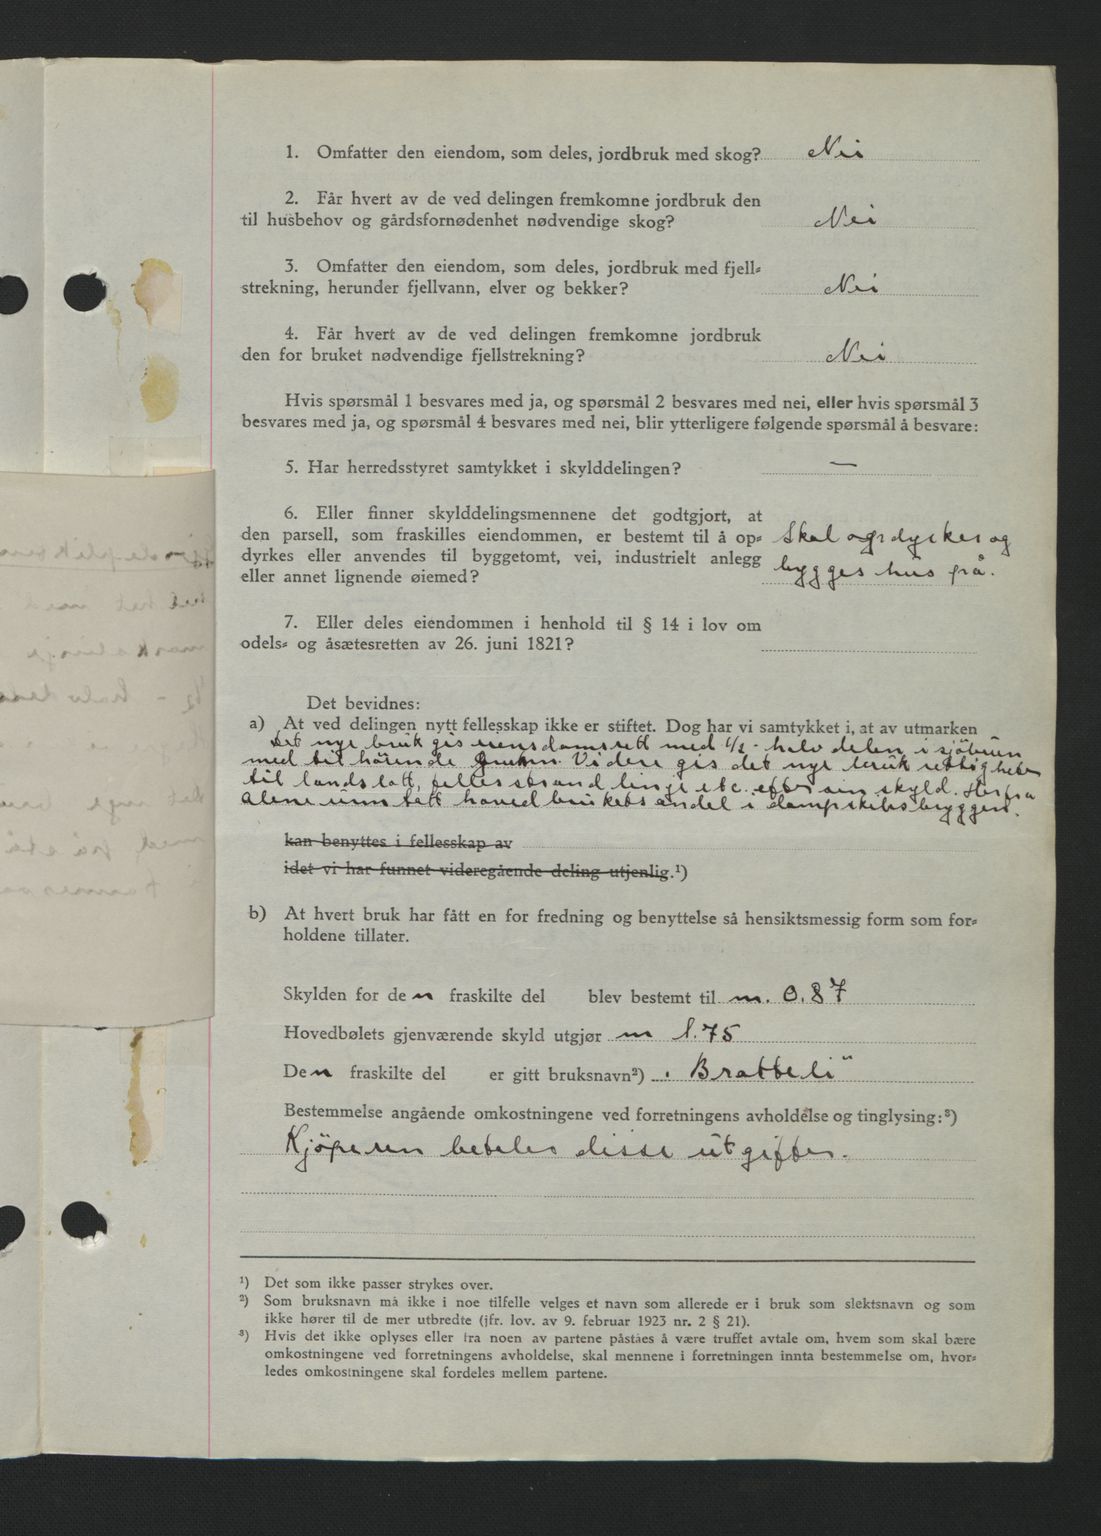 1. Omfatter den eiendom, som deles, jordbruk med skog? Nei
2. Får hvert av de ved delingen fremkomne jordbruk den
til husbehov og gårdsfornødenhet nødvendige skog? Nei
3. Omfatter den eiendom, som deles, jordbruk med fjell-
strekning, herunder fjellvann, elver og bekker? Nei
4. Får hvert av de ved delingen fremkomne jordbruk
den for bruket nødvendige fjellstrekning? Nei
Hvis spørsmål 1 besvares med ja, og spørsmål 2 besvares med nei, eller hvis spørsmål 3
besvares med ja, og spørsmål 4 besvares med nei, blir ytterligere følgende spørsmål å besvare:
5. Har herredsstyret samtykket i skylddelingen? —
6. Eller finner skylddelingsmennene det godtgjort, at
den parsell, som fraskilles eiendommen, er bestemt til å op- Skal opdyrkes og
dyrkes eller anvendes til byggetomt, vei, industrielt anlegg bygges hus på.
eller annet lignende øiemed?
7. Eller deles eiendommen i henhold til § 14 i lov om
odels- og åsætesretten av 26. juni 1821?
Det bevidnes:
a) At ved delingen nytt fellesskap ikke er stiftet. Dog har vi samtykket i, at av utmarken
det nye bruk gis eiendomsrett med 1/2 - halvdelen i sjöbuen
med tilhörende grunn. Videre gis det nye bruk rettigheter
til landslott, felles strandlinje etc. efter sin skyld. Herfra
alene unntatt hovedbrukets andel i dampskibsbryggen.
kan benyttes i fellesskap av
idet vi har funnet videregående deling utjenlig.¹)
b) At hvert bruk har fått en for fredning og benyttelse så hensiktsmessig form som for-
holdene tillater.
Skylden for den fraskilte del blev bestemt til m. 0.87
Hovedbølets gjenværende skyld utgjør m 1.75
Den fraskilte del er gitt bruksnavn²) „Bratteli"
Bestemmelse angående omkostningene ved forretningens avholdelse og tinglysing:³)
Kjöperen betaler disse utgifter.
¹) Det som ikke passer strykes over.
²) Som bruksnavn må ikke i noe tilfelle velges et navn som allerede er i bruk som slektsnavn og som
ikke hører til de mer utbredte (jfr. lov. av 9. februar 1923 nr. 2 § 21).
³) Hvis det ikke oplyses eller fra noen av partene påståes å være truffet avtale om, hvem som skal bære
omkostningene ved forretningens avholdelse, skal mennene i forretningen innta bestemmelse om, hvor-
ledes omkostningene skal fordeles mellem partene.